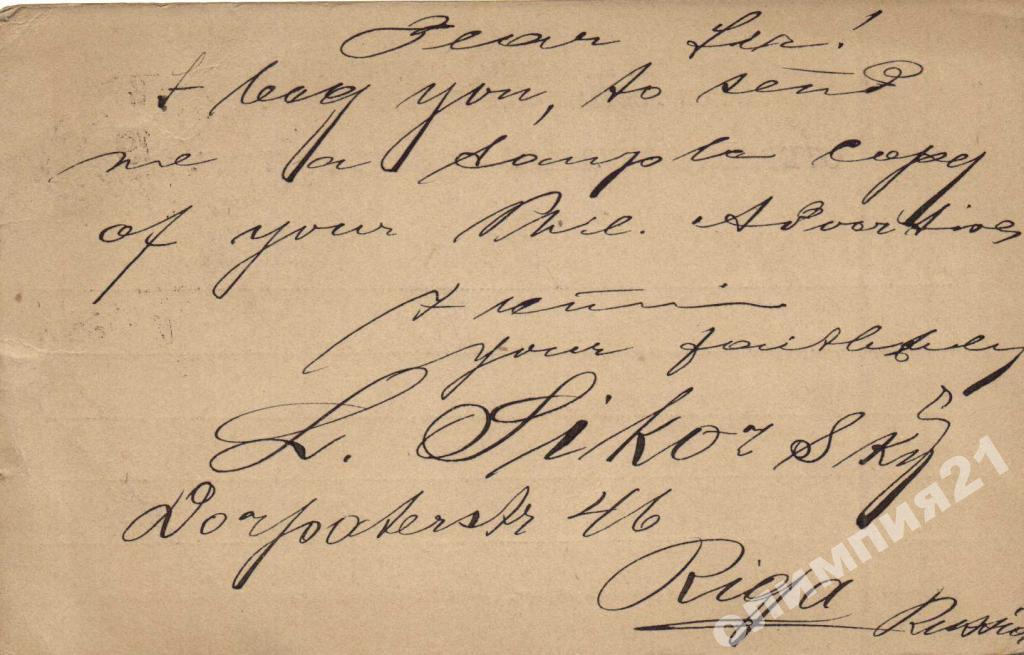 Dear Sir!
I beg you, to send
me a sample copy
of your Phil. Advertiser
I remain
your faithfully
L. Sikorsky
Dorpaterstr 46
Riga
Russia
олимпия21